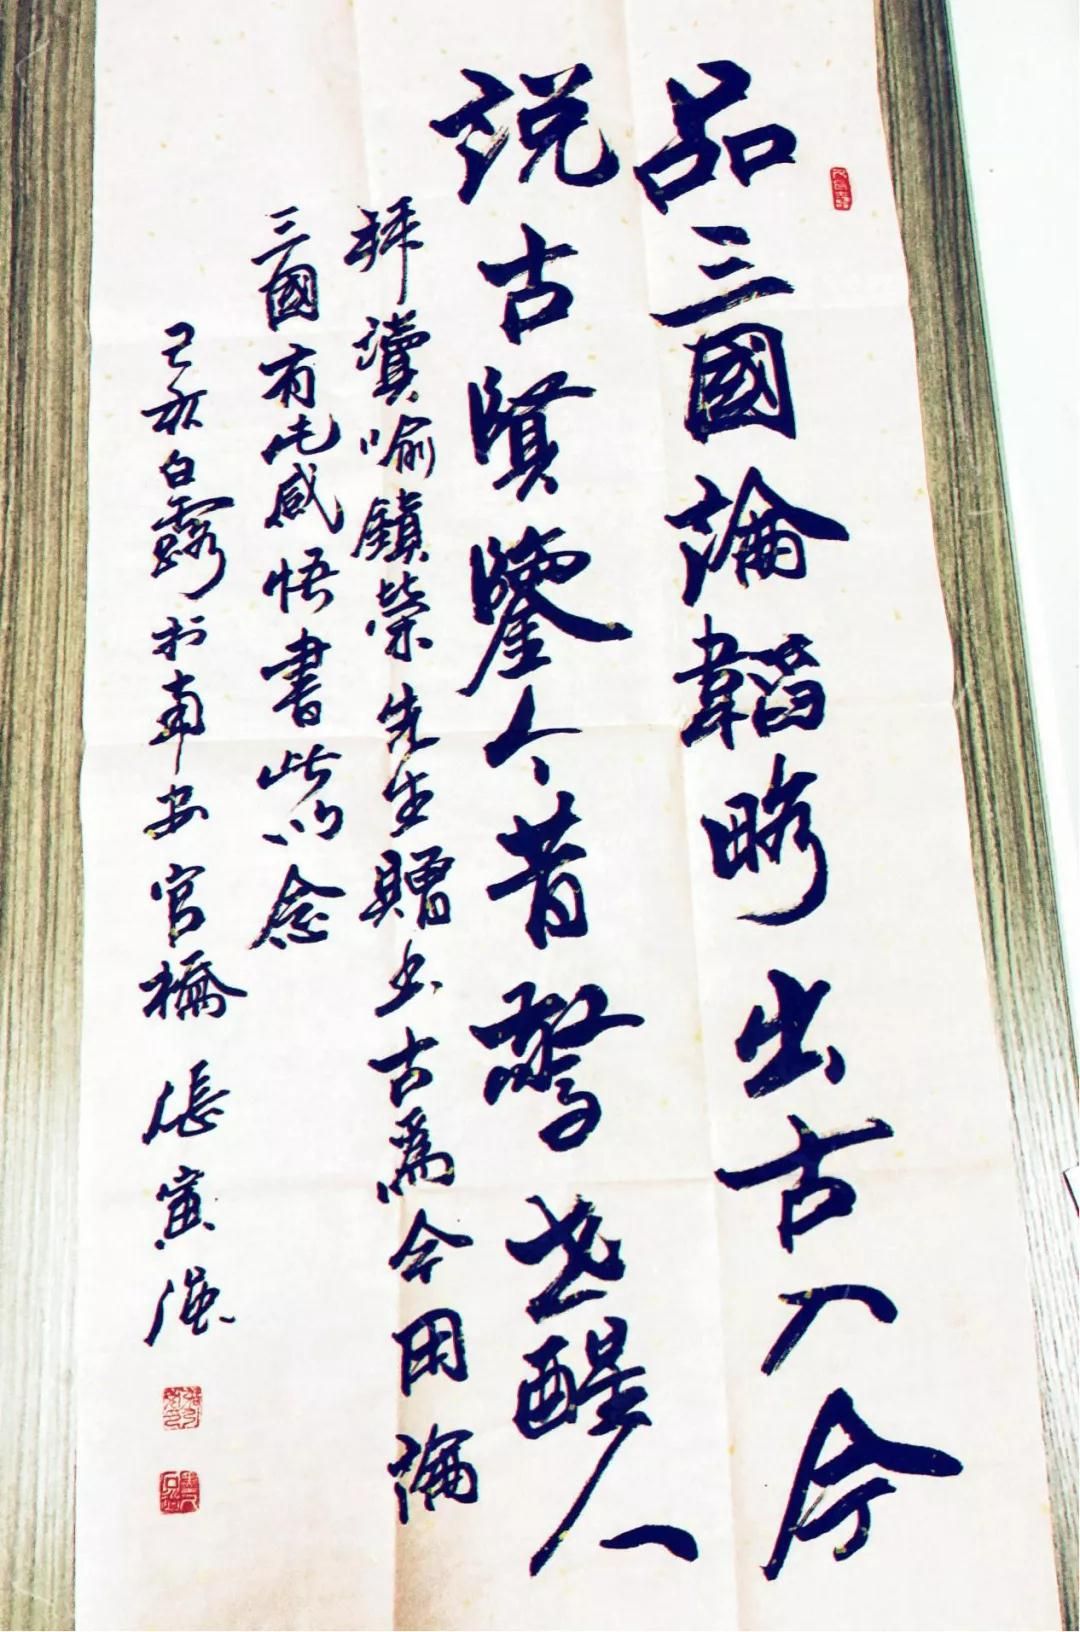 品三國論韜略出古入今
説古賢鑒今昔警世醒人
拜讀喻鎮榮先生贈書古為今用論
三國有此感悟書此以念
己亥白露於南安官橋 張寅强